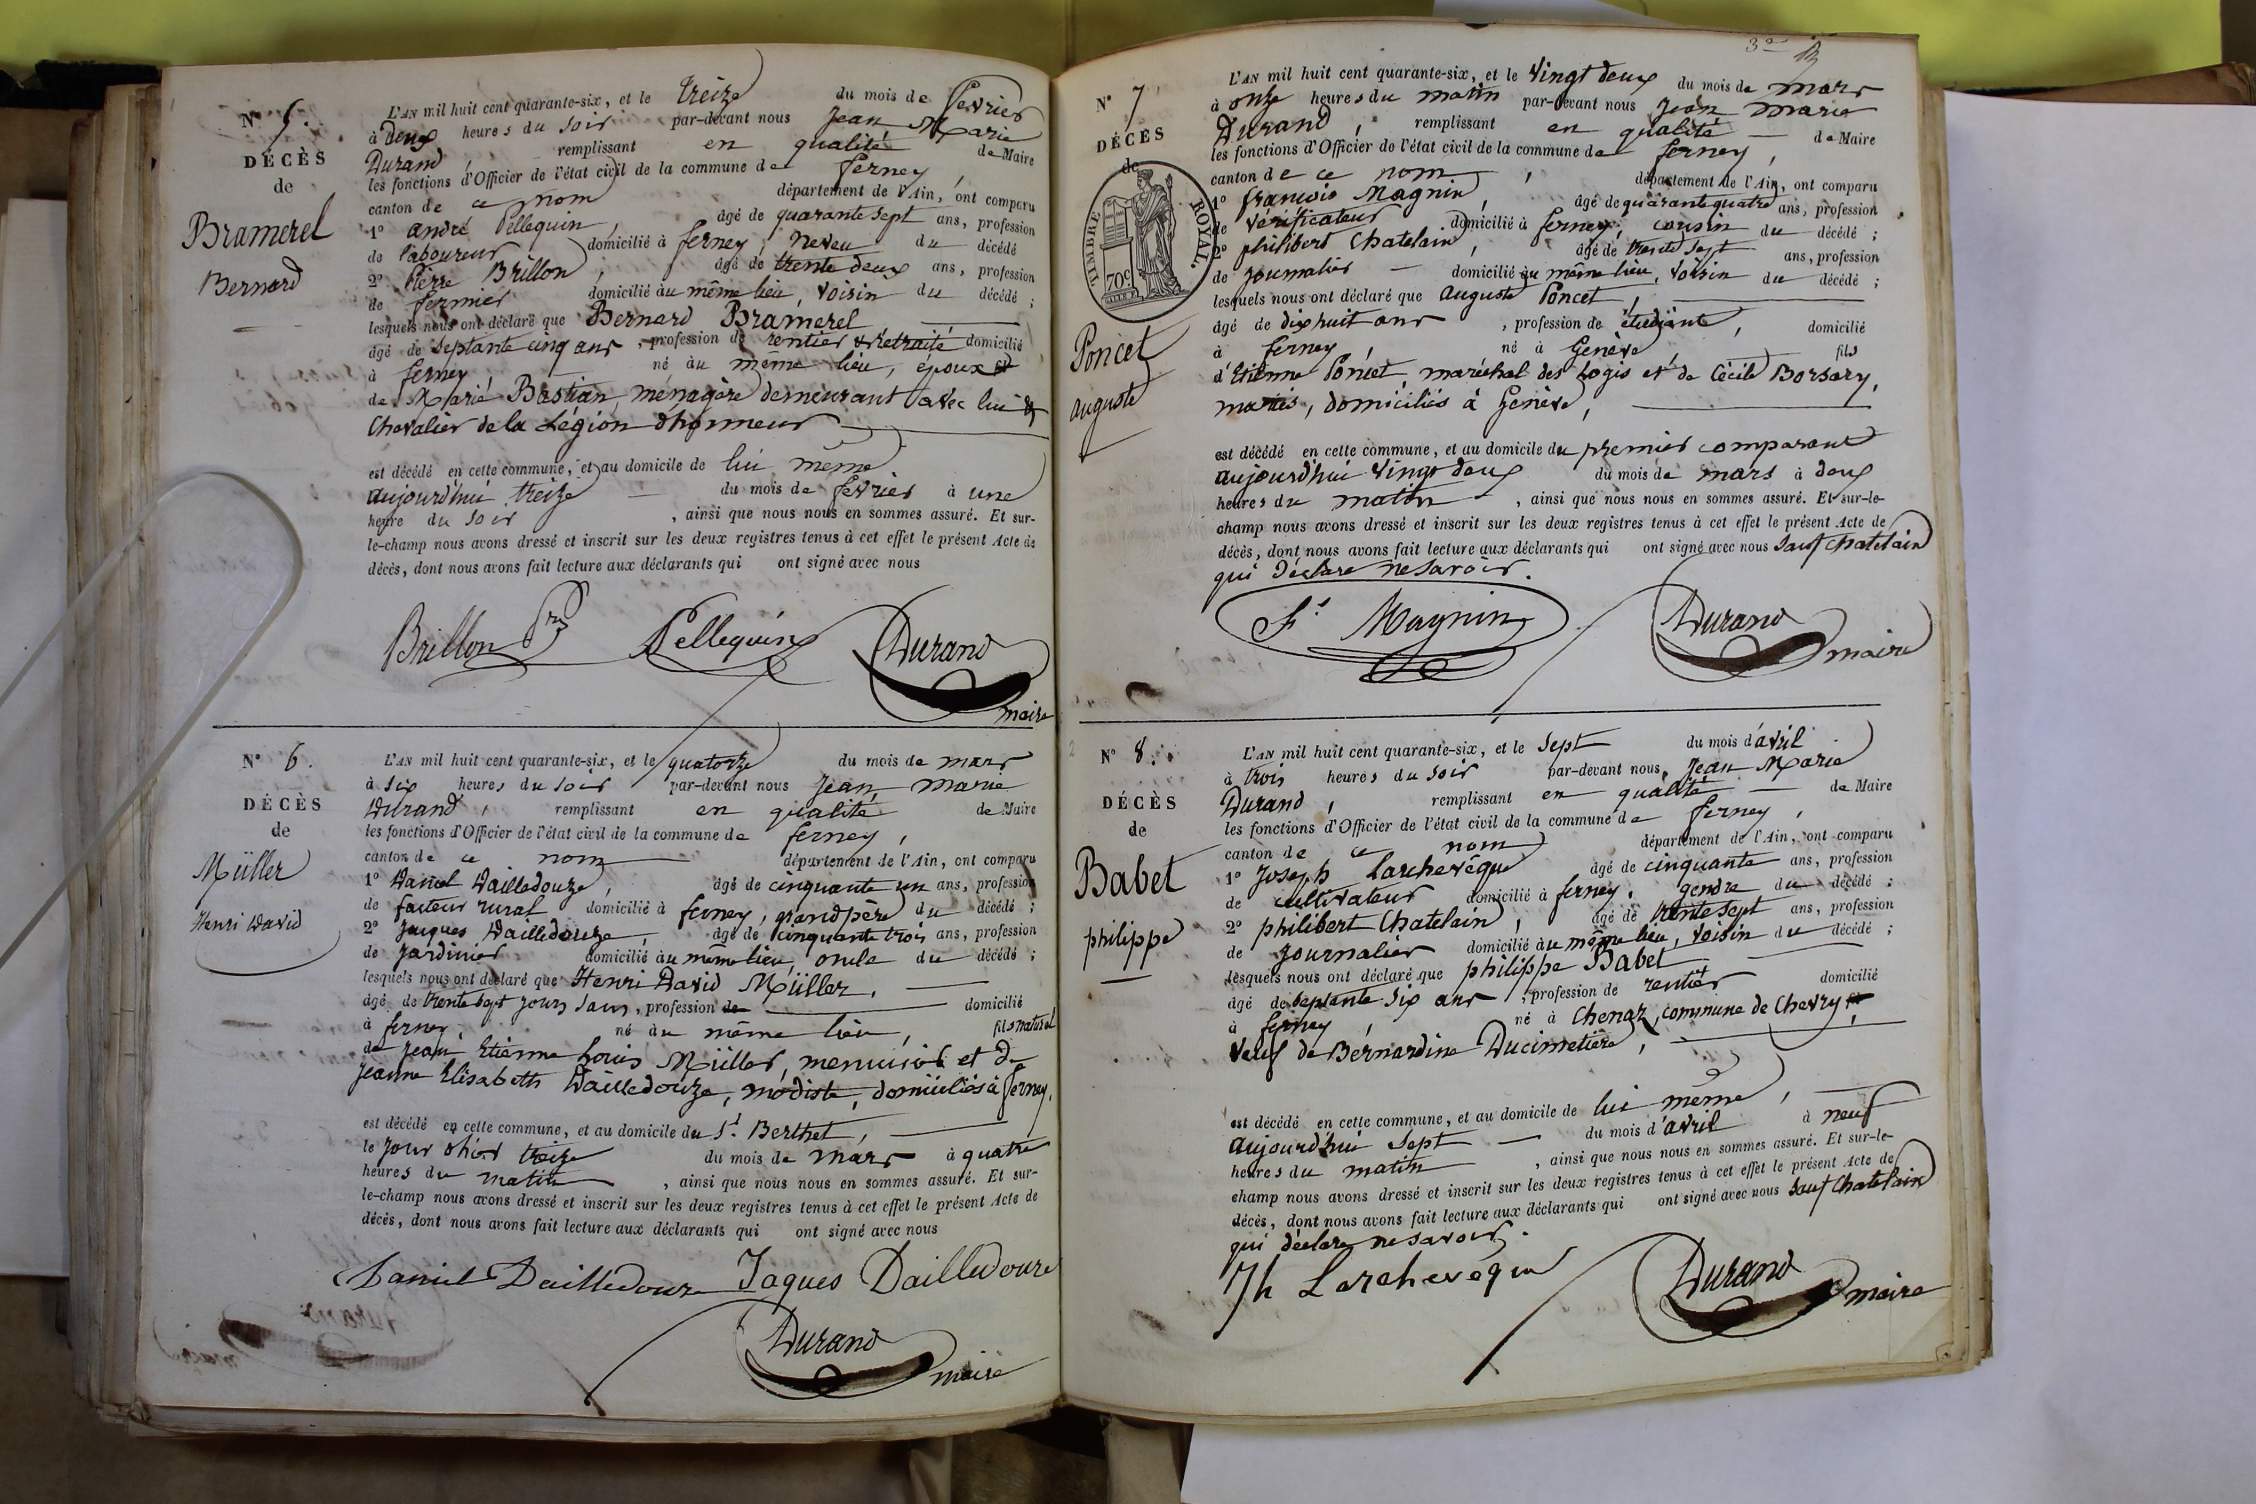 N° 5.
DÉCÈS
de
Bramerel
Bernard
L'AN mil huit cent quarante-six, et le treize du mois de fevrier
à deux heures du soir par-devant nous Jean Marie
Durand, remplissant en qualité de Maire
les fonctions d'Officier de l'état civil de la commune de ferney,
canton de ce nom département de l'Ain, ont comparu
1° andré Pellequin, âgé de quarante sept ans, profession
de laboureur domicilié à ferney, neveu du décédé
2° Pierre Brillon, âgé de trente deux ans, profession
de fermier domicilié au même lieu, voisin du décédé ;
lesquels nous ont déclaré que Bernard Bramerel
âgé de septante cinq ans, profession de rentier & retraité domicilié
à ferney né au même lieu, époux
de Marie Bastian, ménagère demeurant avec lui &
chevalier de la Légion dhonneur
est décédé en cette commune, et au domicile de lui même
aujourd'hui treize du mois de fevrier à une
heure du soir, ainsi que nous nous en sommes assuré. Et sur-
le-champ nous avons dressé et inscrit sur les deux registres tenus à cet effet le présent Acte de
décès, dont nous avons fait lecture aux déclarants qui ont signé avec nous
Brillon Pellequin Durand
maire
N° 6.
DÉCÈS
de
Müller
Henri David
L'AN mil huit cent quarante-six, et le quatorze du mois de mars
à six heures du soir par-devant nous Jean Marie
Durand, remplissant en qualité de Maire
les fonctions d'Officier de l'état civil de la commune de ferney,
canton de ce nom département de l'Ain, ont comparu
1° Daniel Dailledouze, âgé de cinquante un ans, profession
de facteur rural domicilié à ferney, grand père du décédé ;
2° Jaques Dailledouze, âgé de cinquante trois ans, profession
de jardinier domicilié au même lieu, oncle du décédé ;
lesquels nous ont déclaré que Henri David Müller,
âgé de trente sept jours sans, profession de domicilié
à ferney né au même lieu, fils naturel
de Jean Etienne Louis Müller, menuisier et de
Jeanne Elisabeth Dailledouze, modiste, domiciliés à ferney,
est décédé en cette commune, et au domicile du Sr. Berthet,
le jour d'hier treize du mois de mars à quatre
heures du matin, ainsi que nous nous en sommes assuré. Et sur-
le-champ nous avons dressé et inscrit sur les deux registres tenus à cet effet le présent Acte de
décès, dont nous avons fait lecture aux déclarants qui ont signé avec nous
Daniel Dailledouze Jaques Dailledouze
Durand
maire
N° 7
DÉCÈS
de
TIMBRE ROYAL.
70c
Poncet
auguste
L'AN mil huit cent quarante-six, et le vingt deux du mois de mars
à onze heures du matin par-devant nous Jean Marie
Durand, remplissant en qualité de Maire
les fonctions d'Officier de l'état civil de la commune de ferney,
canton de ce nom, département de l'Ain, ont comparu
1° françois Magnin, âgé de quarante quatre ans, profession
de vérificateur domicilié à ferney, cousin du décédé ;
2° philibert Chatelain, âgé de trente sept ans, profession
de journalier domicilié au même lieu, voisin du décédé ;
lesquels nous ont déclaré que auguste Poncet,
âgé de dix huit ans, profession de étudiant, domicilié
à ferney, né à Genève fils
d'Etienne Poncet, maréchal des Logis et de Cécile Borsary,
mariés, domiciliés à Genève,
est décédé en cette commune, et au domicile du premier comparant
aujourd'hui vingt deux du mois de mars à deux
heures du matin, ainsi que nous nous en sommes assuré. Et sur-le-
champ nous avons dressé et inscrit sur les deux registres tenus à cet effet le présent Acte de
décès, dont nous avons fait lecture aux déclarants qui ont signé avec nous sauf Chatelain
qui déclare ne savoir.
fs. Magnin Durand
maire
N° 8.
DÉCÈS
de
Babet
philippe
L'AN mil huit cent quarante-six, et le sept du mois d'avril
à trois heures du soir par-devant nous, Jean Marie
Durand, remplissant en qualité de Maire
les fonctions d'Officier de l'état civil de la commune de ferney,
canton de ce nom département de l'Ain, ont comparu
1° Joseph Larchevêque âgé de cinquante ans, profession
de cultivateur domicilié à ferney, gendre du décédé ;
2° philibert Chatelain, âgé de trente sept ans, profession
de journalier domicilié au même lieu, voisin du décédé ;
lesquels nous ont déclaré que philippe Babet
âgé de septante six ans, profession de rentier domicilié
à ferney, né à Chenaz, commune de Chevry,
veuf de Bernardine Ducimetière,
est décédé en cette commune, et au domicile de lui même,
aujourd'hui sept du mois d'avril à neuf
heures du matin, ainsi que nous nous en sommes assuré. Et sur-le-
champ nous avons dressé et inscrit sur les deux registres tenus à cet effet le présent Acte de
décès, dont nous avons fait lecture aux déclarants qui ont signé avec nous sauf Chatelain
qui déclare ne savoir.
Jh Larchevêque Durand
maire